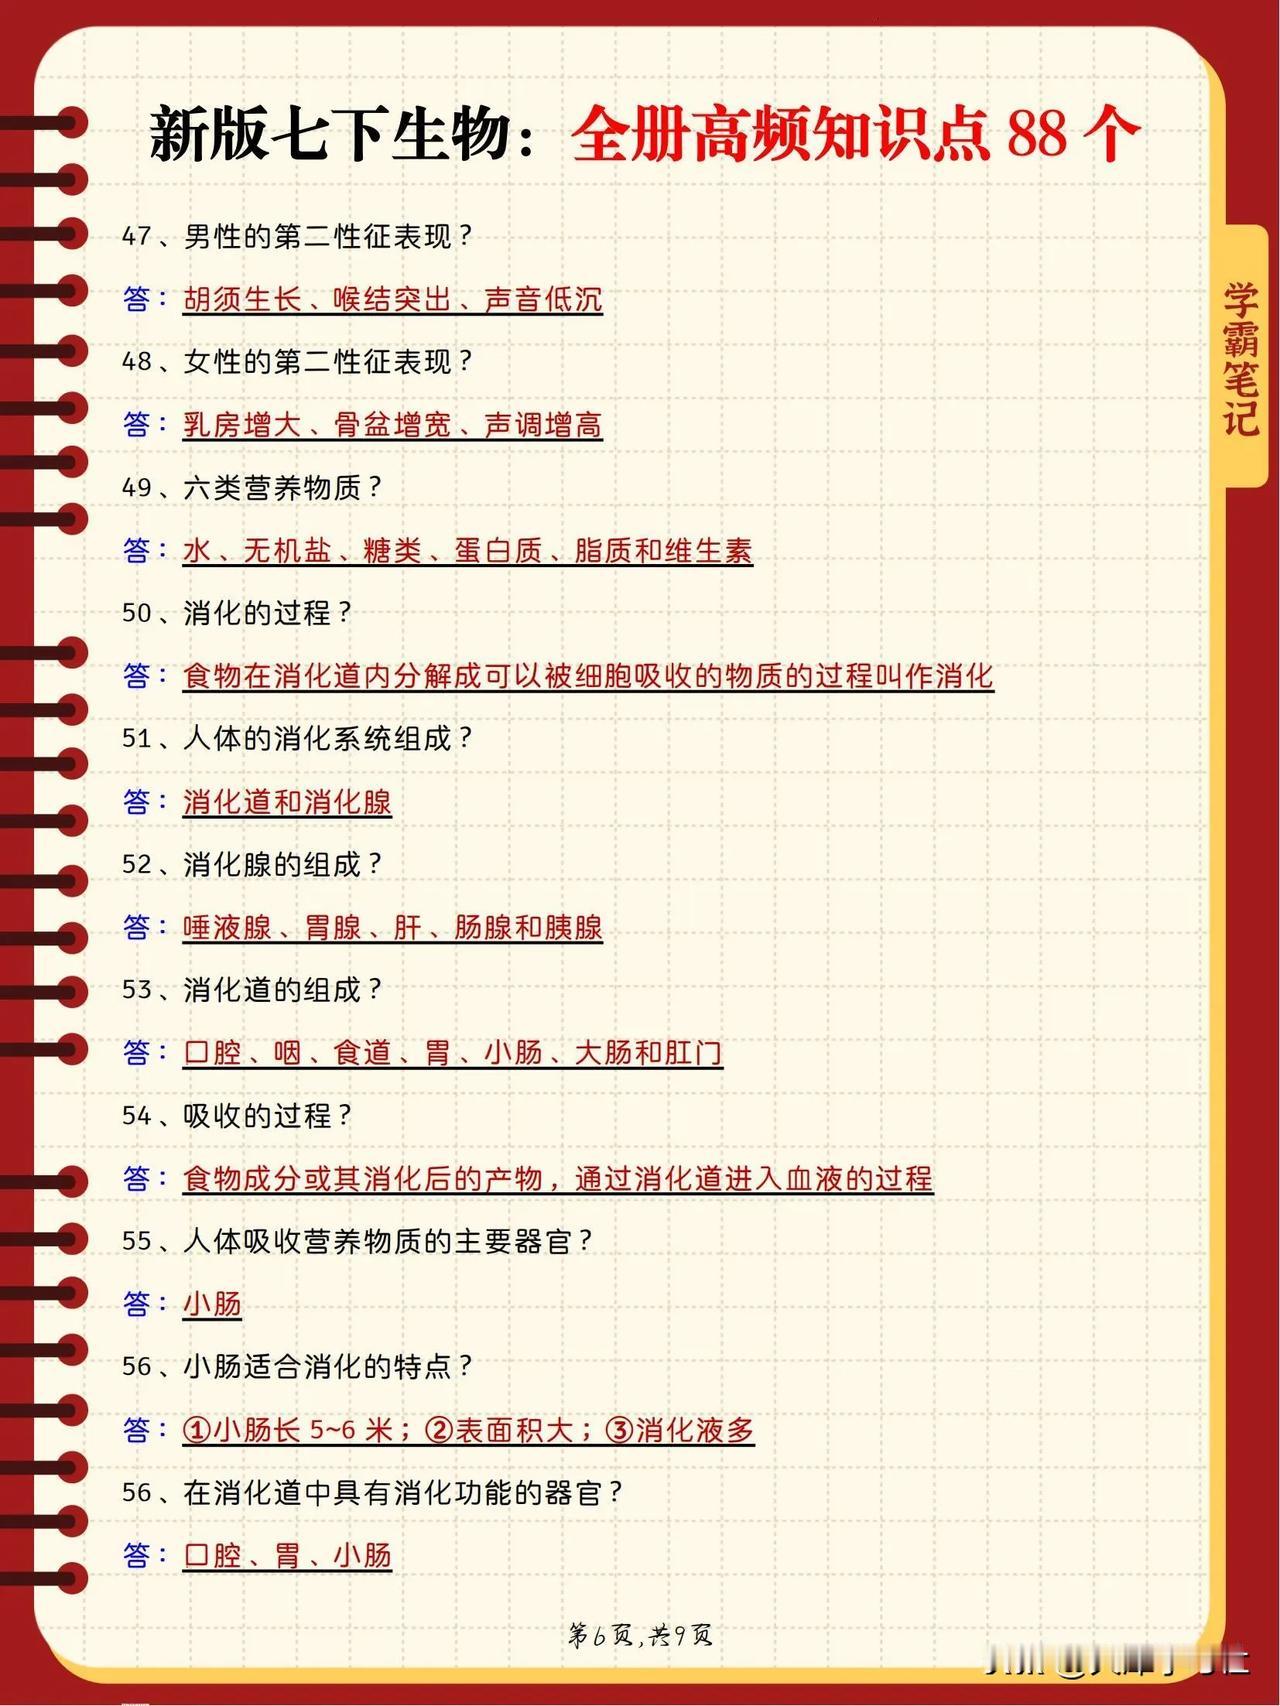 新版七下生物：全册高频知识点 88 个
学霸笔记
47、男性的第二性征表现？
答：胡须生长、喉结突出、声音低沉
48、女性的第二性征表现？
答：乳房增大、骨盆增宽、声调增高
49、六类营养物质？
答：水、无机盐、糖类、蛋白质、脂质和维生素
50、消化的过程？
答：食物在消化道内分解成可以被细胞吸收的物质的过程叫作消化
51、人体的消化系统组成？
答：消化道和消化腺
52、消化腺的组成？
答：唾液腺、胃腺、肝、肠腺和胰腺
53、消化道的组成？
答：口腔、咽、食道、胃、小肠、大肠和肛门
54、吸收的过程？
答：食物成分或其消化后的产物，通过消化道进入血液的过程
55、人体吸收营养物质的主要器官？
答：小肠
56、小肠适合消化的特点？
答：①小肠长 5~6 米；②表面积大；③消化液多
56、在消化道中具有消化功能的器官？
答：口腔、胃、小肠
第6页,共9页